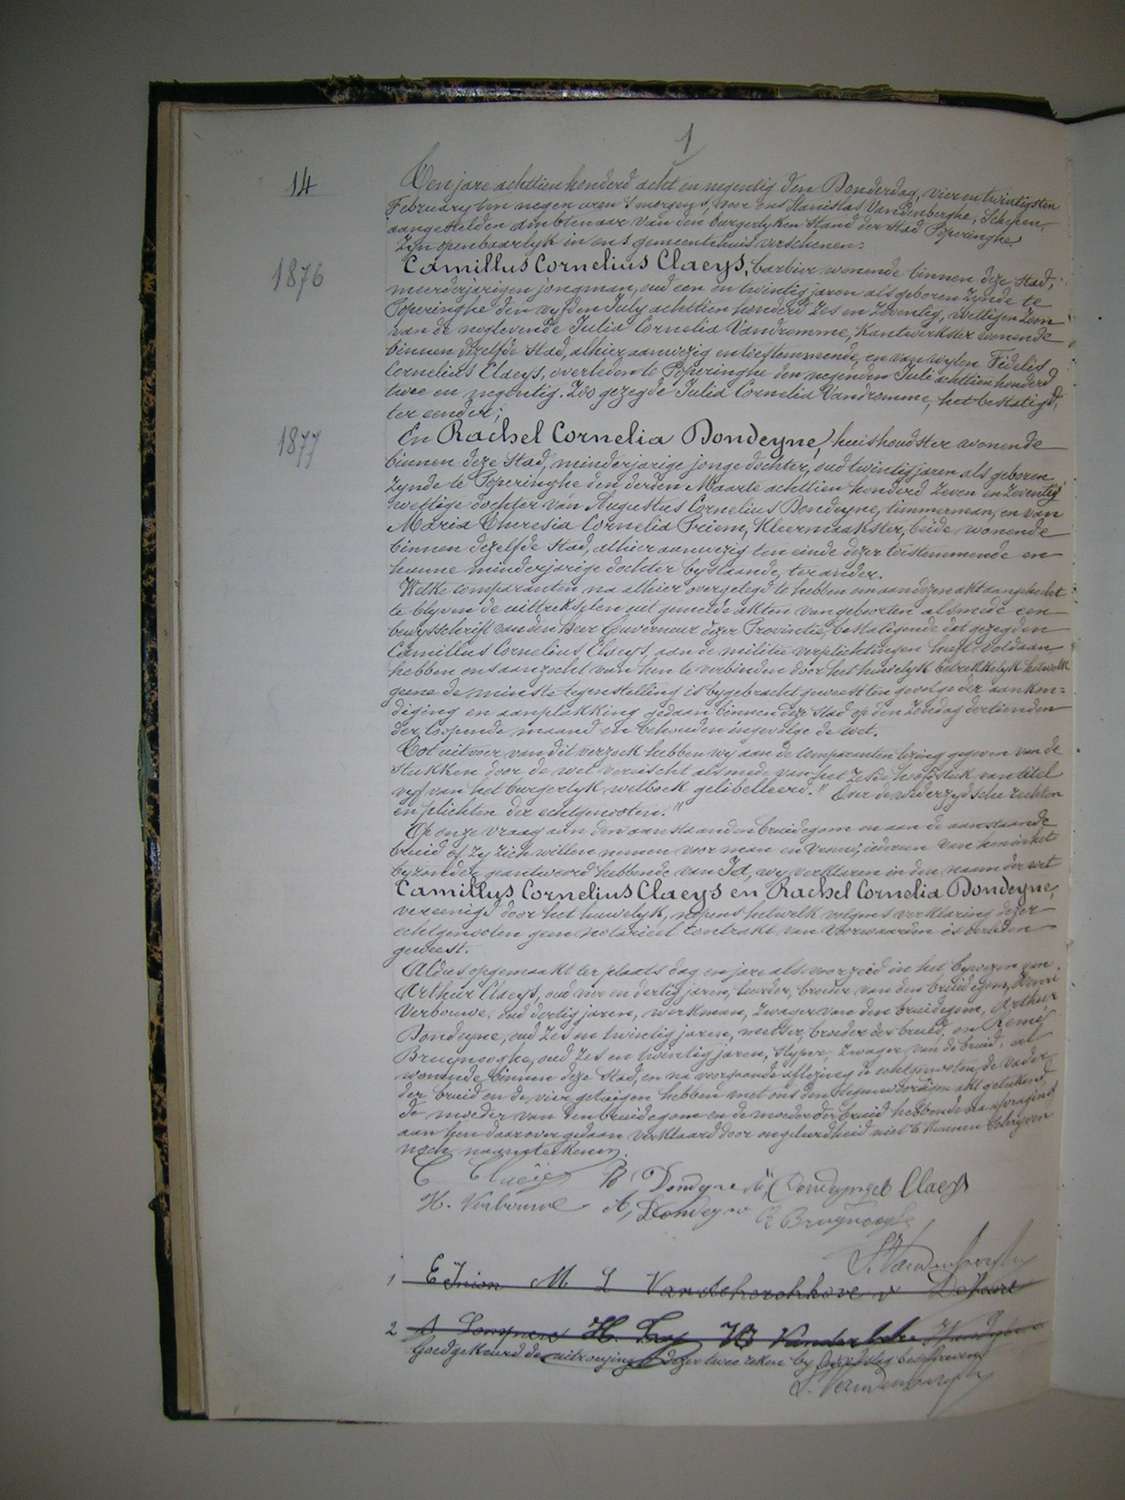 1
14
Den jare achttien honderd acht en negentig den Donderdag, vier en twintigsten
February ten negen uren 's morgens, voor ons Stanislas Vandenberghe, Schepen,
aangestelden ambtenaar van den burgerlyken Stand der Stad Poperinghe,
Zyn openbaarlyk in ons gemeentehuis verschenen:
1876
Camillus Cornelius Claeys, barbier wonende binnen deze Stad,
meerderjarigen jongman, oud een en twintig jaren als geboren zynde te
Poperinghe den vyfden July achttien honderd zes en zeventig, wettigen zoon
van de nog levende Julia Cornelia Vandromme, kantwerkster wonende
binnen dezelfde Stad, alhier aanwezig en toestemmende, en van wylen Fidelis
Cornelius Claeys, overleden te Poperinghe den negenden Juli achttien honderd
twee en negentig. Zoo gezegde Julia Cornelia Vandromme, het bestatigd,
ter eender;
1877
En Rachel Cornelia Dondeyne, huishoudster wonende
binnen deze Stad, minderjarige jonge dochter, oud twintig jaren als geboren
zynde te Poperinghe den derden Maarte achttien honderd zeven en zeventig
wettige dochter van Augustus Cornelius Dondeyne, timmerman, en van
Maria Theresia Cornelia Priem, Kleermaakster, beide wonende
binnen dezelfde Stad, alhier aanwezig ten einde dezer toestemmende en
hunne minderjarige dochter bystaande, ter ander.
Welke comparanten na alhier overgelegd te hebben om aan dezen akt aangehecht
te blyven de uittreksels uit gemelde akten van geboorten alsmede een
bewysschrift van den Heer Gouverneur dezer Provintie, bestatigende dat gezegden
Camillus Cornelius Claeys aan de militie verplichtingen heeft voldaan
hebben ons aanzocht van hen te verbinden door het huwelyk betrekkelyk hetwelk
geene de minste tegenstelling is bygebracht geweest ten gevolge der aankon=
diging en aanplakking gedaan binnen deze Stad op den Zondag dertienden
der loopende maand en behouden ingevolge de wet.
Tot uitvoer van dit verzoek hebben wy aan de comparanten lezing gegeven van de
stukken door de wet vereischt alsmede van het zesde hoofdstuk van titel
vyf van het burgerlyk wetboek gelibelleerd: "Over de wederzydsche rechten
en plichten der echtgenooten."
Op onze vraag aan den aanstaanden bruidegom en aan de aanstaande
bruid of zy zich willen nemen voor man en vrouw, iedereen van hen in het
byzonder geantwoord hebbende van Ja, wy verklaren in den naam der wet
Camillus Cornelius Claeys en Rachel Cornelia Dondeyne,
vereenigd door het huwelyk, nopens hetwelk volgens verklaring dezer
echtgenooten geen notarieel Contrakt van Voorwaarden is verleden
geweest.
Aldus opgemaakt ter plaats dag en jare als voorzeid in het bywezen van
Arthur Claeys, oud en dertig jaren, broeder van den bruidegom, Henri
Verbouwe, oud dertig jaren, werkman, zwager van den bruidegom, Arthur
Dondeyne, oud zes en twintig jaren, metser, broeder der bruid, en Remi
Bruynooghe, oud zes en twintig jaren, zwager van de bruid, al
wonende binnen deze Stad, en na voorgaande aflezing de echtgenooten, de vader
der bruid en de vier getuigen hebben met ons den tegenwoordigen akt geteekend,
de moeder van den bruidegom en de moeder der bruid hebbende na afvraging
aan hen daarover gedaan verklaard door ongeleerdheid niet te kunnen schryven
noch naamteekenen.
C Claeys R Dondeyne A Dondeyne Claeys
H. Verbouwe A, Dondeyne R Bruynooghe
S. Vandenberghe
1
2
Goedgekeurd de uitroeying dezer twee reken by
S. Vandenberghe